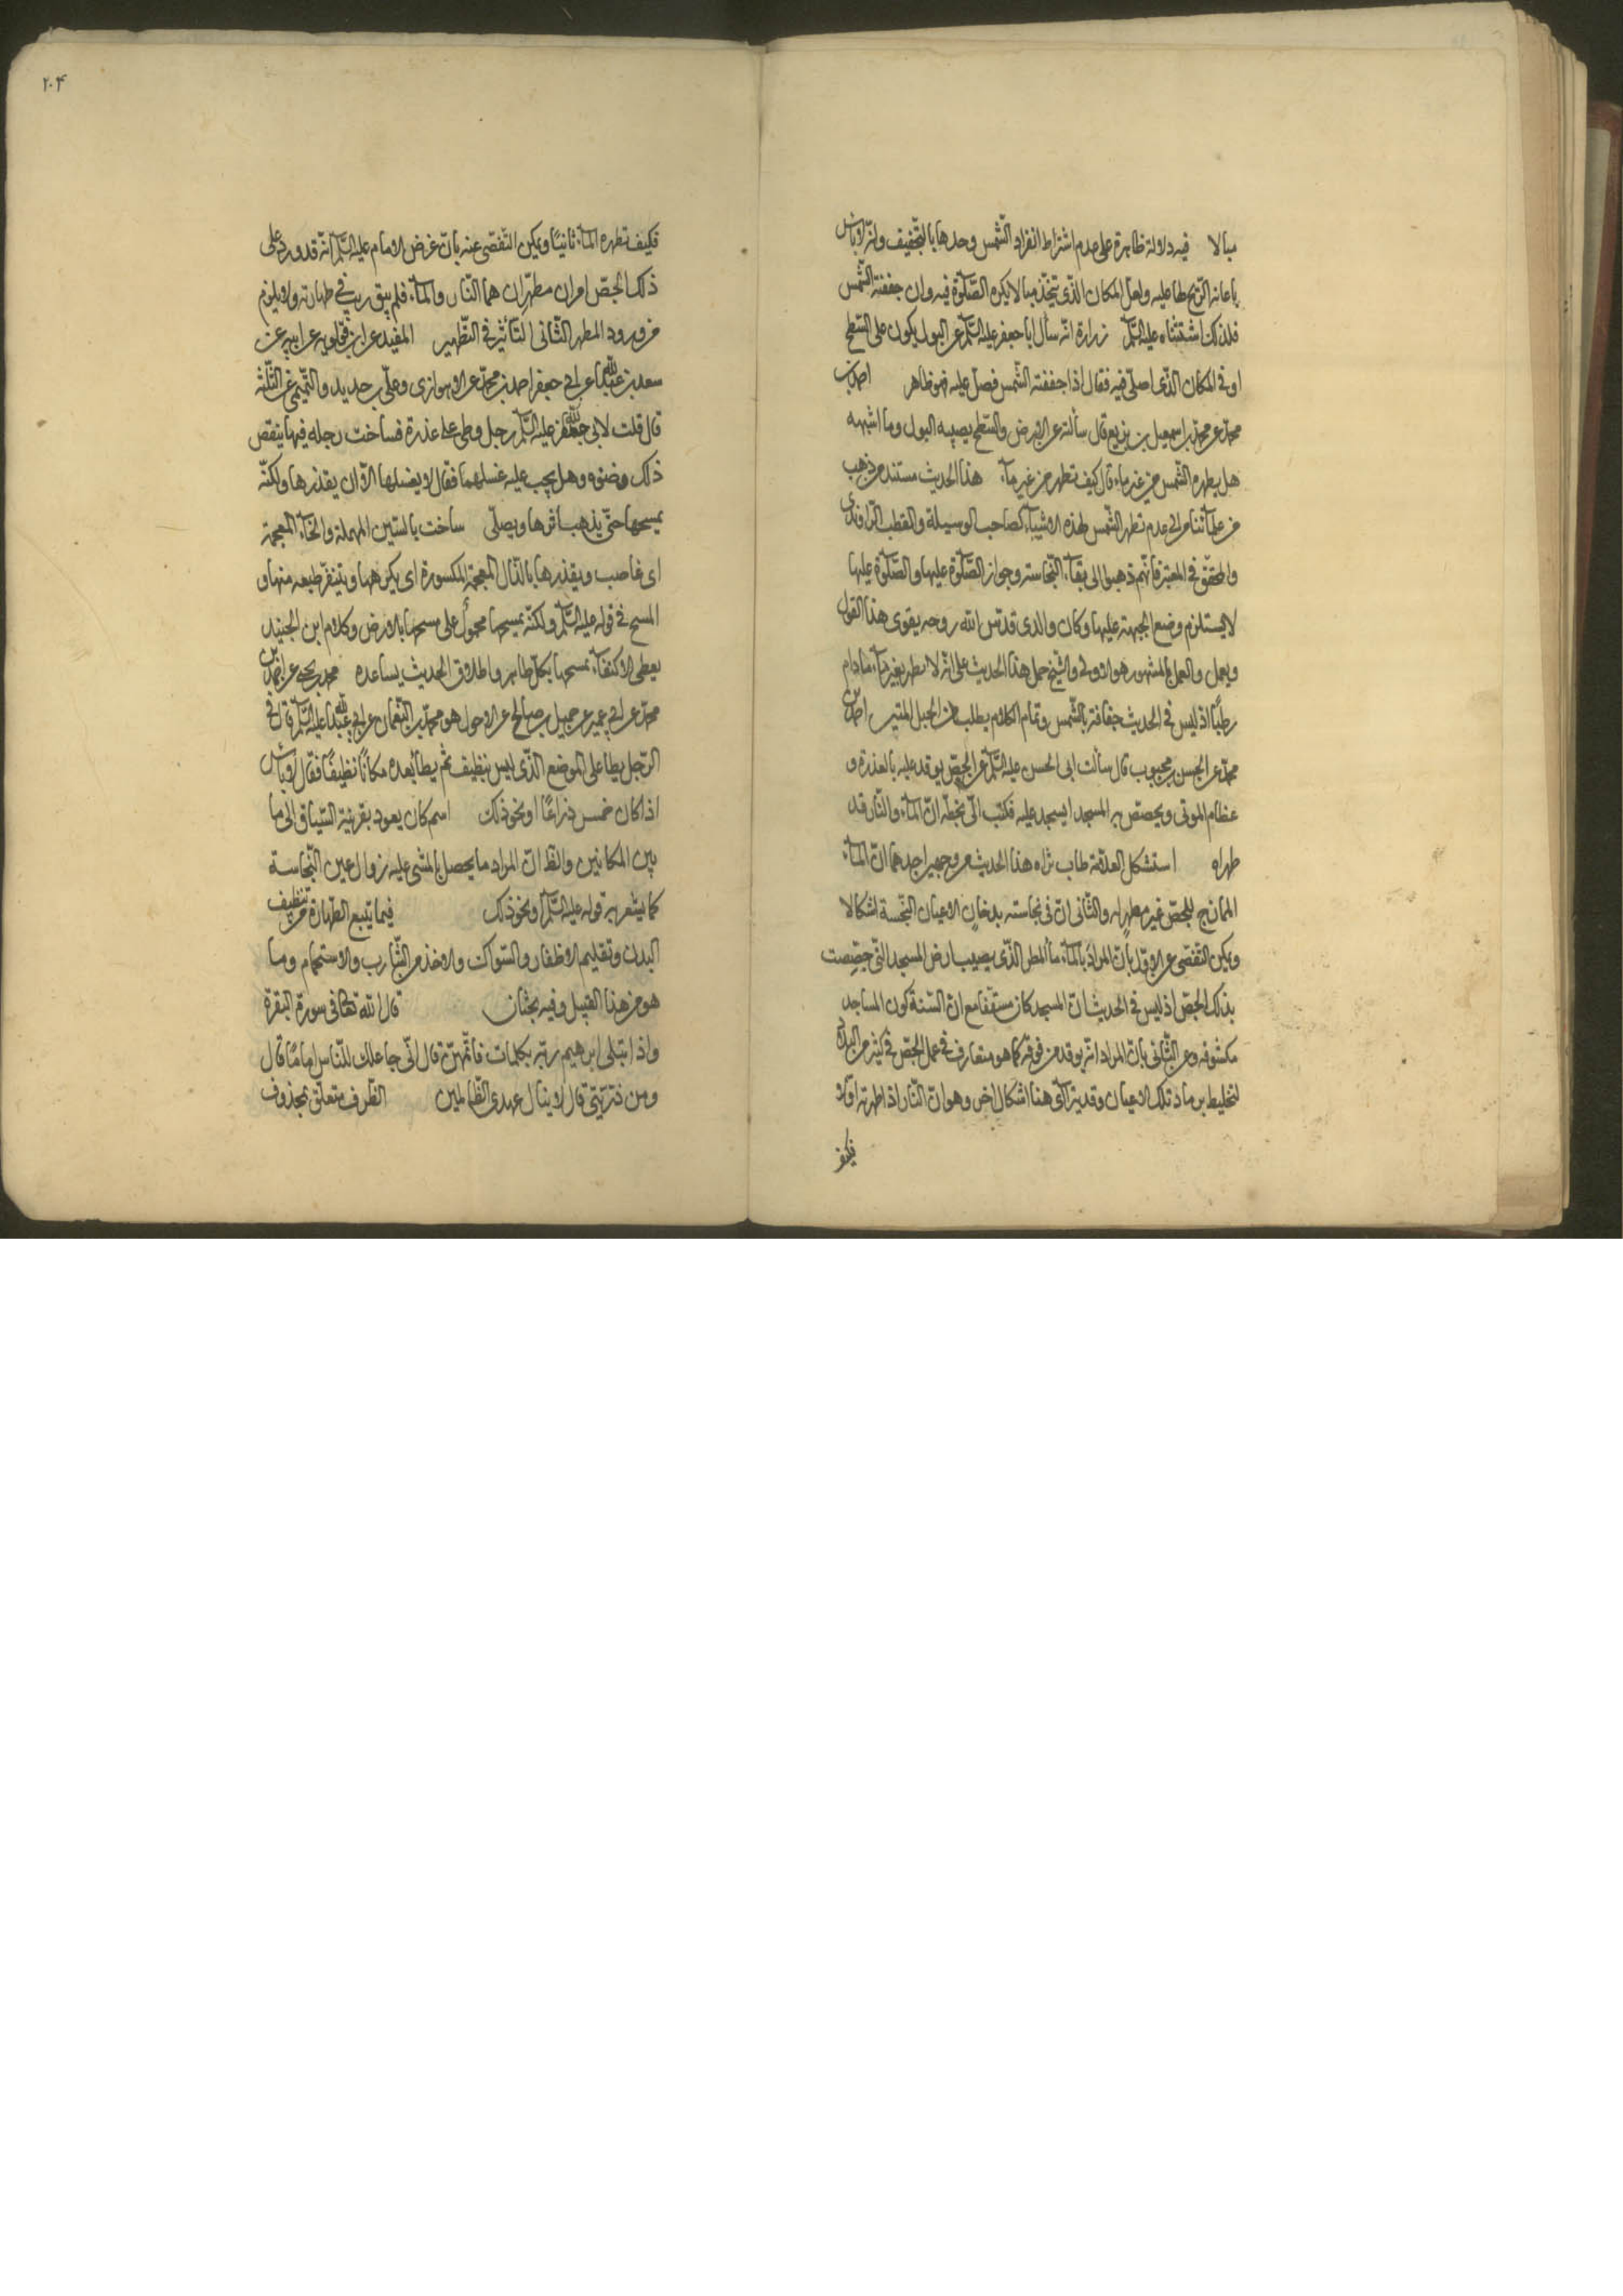 مبالا فيه دلالة ظاهرة على عدم اشتراط انفراد الشمس وحدها بالتجفيف وانه لا باس
باعانة الريح لها عليه ولعل المكان الذى يتخذ مبالا يكره الصلوة فيه وان جففته الشمس
فلذلك استثناه عليه السلم زرارة انه سأل ابا جعفر عليه السلم عن البول يكون على السطح
او فى المكان الذى اصلى فيه فقال اذا جففته الشمس فصل عليه فهو طاهر احمد بن
محمد عن محمد بن اسمعيل بن بزيع قال سألته عن الارض والسطح يصيبه البول وما اشبهه
هل يطهره الشمس من غير ماء قال كيف تطهر من غير ماء هذا الحديث مستند من ذهب
من علمائنا الى عدم تطهر الشمس لهذه الاشياء كصاحب الوسيلة والقطب الراوندى
والمحقق فى المعتبر فانهم ذهبوا الى بقاء النجاسة وجواز الصلوة عليها والصلوة عليها
لا يستلزم وضع الجبهة عليها وكان والدى قدس الله روحه يقوى هذا القول
ويعمل والعمل بالمشهور هو الاولى والشيخ حمل هذا الحديث على انه لا تطهر بغير ماء ما دام
رطبًا اذ ليس فى الحديث جفافة بالشمس وتمام الكلام يطلب من الحبل المتين احمد بن
محمد عن الحسن بن محبوب قال سألت ابى الحسن عليه السلم عن الجص يوقد عليه بالعذرة و
عظام الموتى ويجصص به المسجد ايسجد عليه فكتب الىّ بخطه ان الماء والنار قد
طهراه استشكل العلامة طاب ثراه هذا الحديث من وجهين احدهما ان الماء
الممازج للجص غير مطهر له والثانى ان فى نجاسته بدخان الاعيان النجسة اشكالا
ويمكن التفصى عن الاول بان المراد بالماء ماء المطر الذى يصيب ارض المسجد التى جصصت
بذلك الجص اذ ليس فى الحديث ان المسجد كان مسقفا مع ان السنة كون المساجد
مكشوفه وعن الثانى بان المراد انه يوقد من فوقه كما هو متعارف فى عمل الجص فى كثير من البلاد
لتخليط برماد تلك الاعيان وقد يتراأى هنا اشكال اخر وهو ان النار اذا طهرته اولا
فكيف
٢٠٤
فكيف تطهره الماء ثانيًا ويمكن التفصى عنه بان غرض الامام عليه السلم انه قد ورد على
ذلك الجص امران مطهران هما النار والماء فلم يبق ريب فى طهارته ولا يلزم
من ورود المطهر الثانى التأثير فى التطهير المفيد عن ابن قولويه عن ابيه عن
سعد بن عبد الله عن ابى جعفر احمد بن محمد عن الاهوازى وعلى بن حديد والتميمى عن الثلثة
قال قلت لابى جعفر عليه السلم رجل وطى على عذرة فساخت رجله فيها ينقض
ذلك وضوه وهل يجب عليه غسلهما فقال لا يغسلها الا ان يقذرها ولكنه
يمسحها حتى يذهب اثرها ويصلى ساخت بالسين المهملة والخاء المعجمة
اى غاصب ويقذرها بالذال المعجمة المكسورة اى يكرهها ويتنفر طبعه منها و
المسح فى قوله عليه السلم ولكنه يمسحها محمول على مسحها بالارض وكلام ابن الجنيد
يعطى الاكتفاء بمسحها بكل طاهر واطلاق الحديث يساعده محمد بن يحيى عن احمد بن
محمد عن ابى عمير عن جميل بن صالح عن الاحول هو محمد بن النعمان عن ابى عبد الله عليه السلم قال فى
الرجل يطأ على الموضع الذى ليس بنظيف ثم يطأ بعده مكانًا نظيفًا فقال لا بأس
اذا كان خمس ذراعًا او نحو ذلك اسم كان يعود بقرينة السياق الى ما
بين المكانين والظ ان المراد ما يحصل بالمشى عليه زوال عين النجاسة
كما يشعر به قوله عليه السلم او نحو ذلك فيما يتبع الطهارة من تنظيف
البدن وتقليم الاظفار والسواك والاخذ من الشارب والاستحمام وما
هو من هذا القبيل وفيه بحثان قال الله تعالى فى سورة البقرة
واذ ابتلى ابرهيم ربه بكلمات فاتمهن قال انى جاعلك للناس امامًا قال
ومن ذريتى قال لا ينال عهدى الظالمين الظرف متعلق بمحذوف